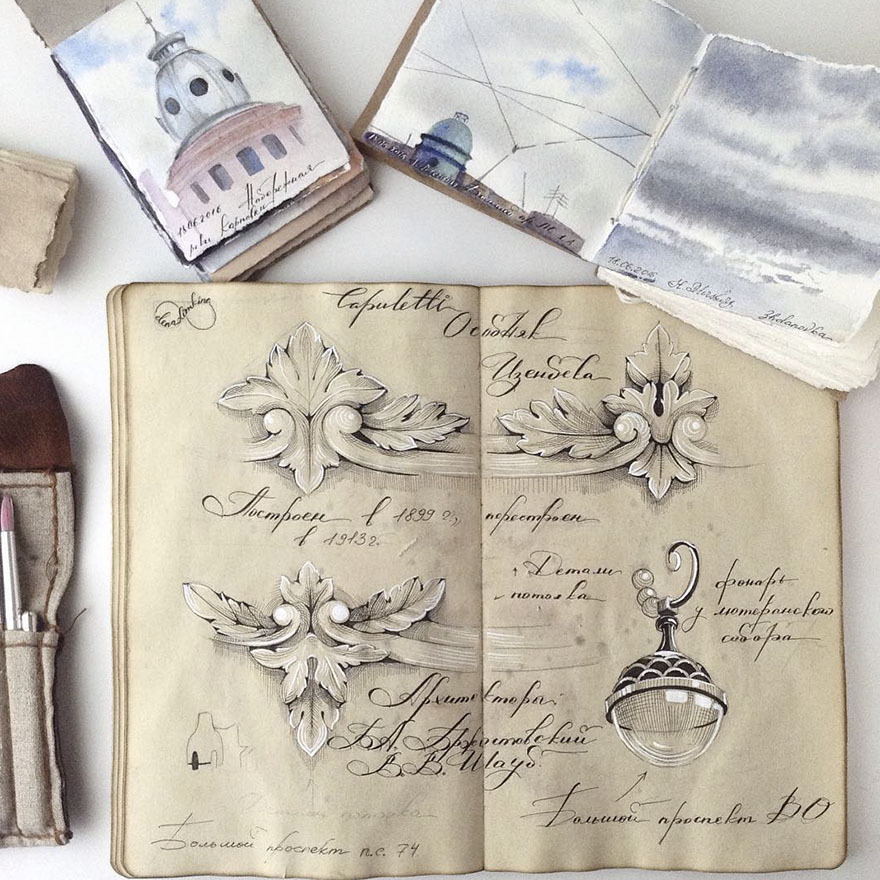 18.06.2016 Набережная
реки Карповки
18.06.2016
Zhdanovka
Elena Limkina
Capuletti
Особняк
Изенбека
Построен в 1899 г., перестроен
в 1913 г.
Детали
потолка
фонарь
у лютеранского
собора
Архитекторы:
Б.А. Бржостовский
В.В. Шауб.
Большой проспект п.с. 74
Большой проспект ВО